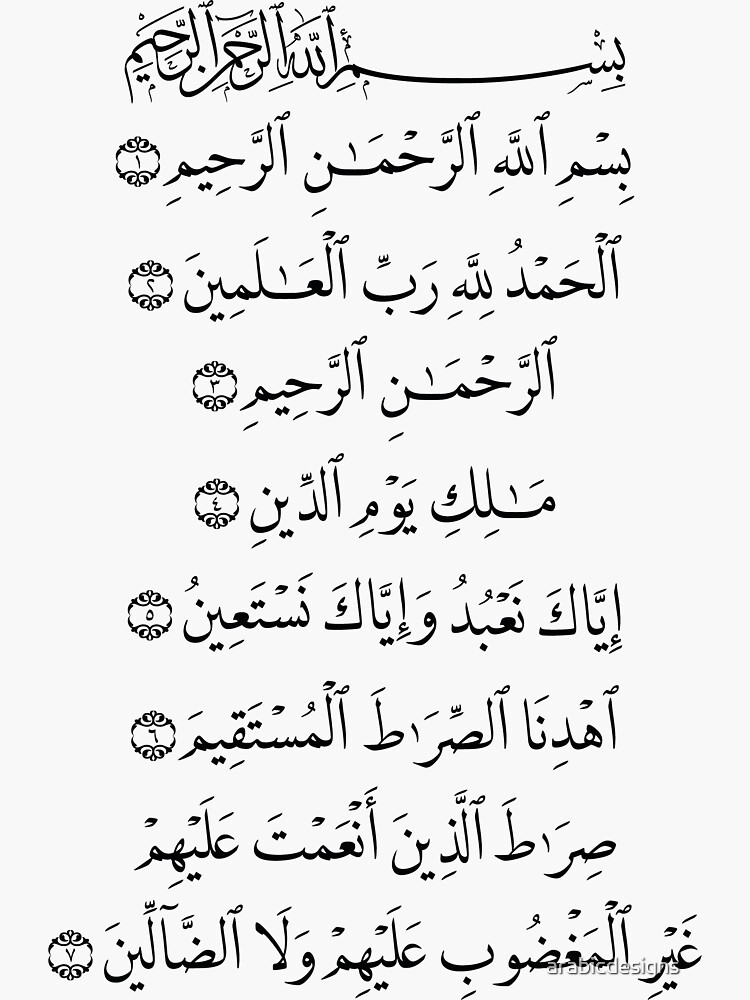 بِسْمِ ٱللَّهِ ٱلرَّحْمَٰنِ ٱلرَّحِيمِ
بِسْمِ ٱللَّهِ ٱلرَّحْمَـٰنِ ٱلرَّحِيمِ ١
ٱلْحَمْدُ لِلَّهِ رَبِّ ٱلْعَـٰلَمِينَ ٢
ٱلرَّحْمَـٰنِ ٱلرَّحِيمِ ٣
مَـٰلِكِ يَوْمِ ٱلدِّينِ ٤
إِيَّاكَ نَعْبُدُ وَإِيَّاكَ نَسْتَعِينُ ٥
ٱهْدِنَا ٱلصِّرَٰطَ ٱلْمُسْتَقِيمَ ٦
صِرَٰطَ ٱلَّذِينَ أَنْعَمْتَ عَلَيْهِمْ
غَيْرِ ٱلْمَغْضُوبِ عَلَيْهِمْ وَلَا ٱلضَّآلِّينَ ٧
arabicdesigns